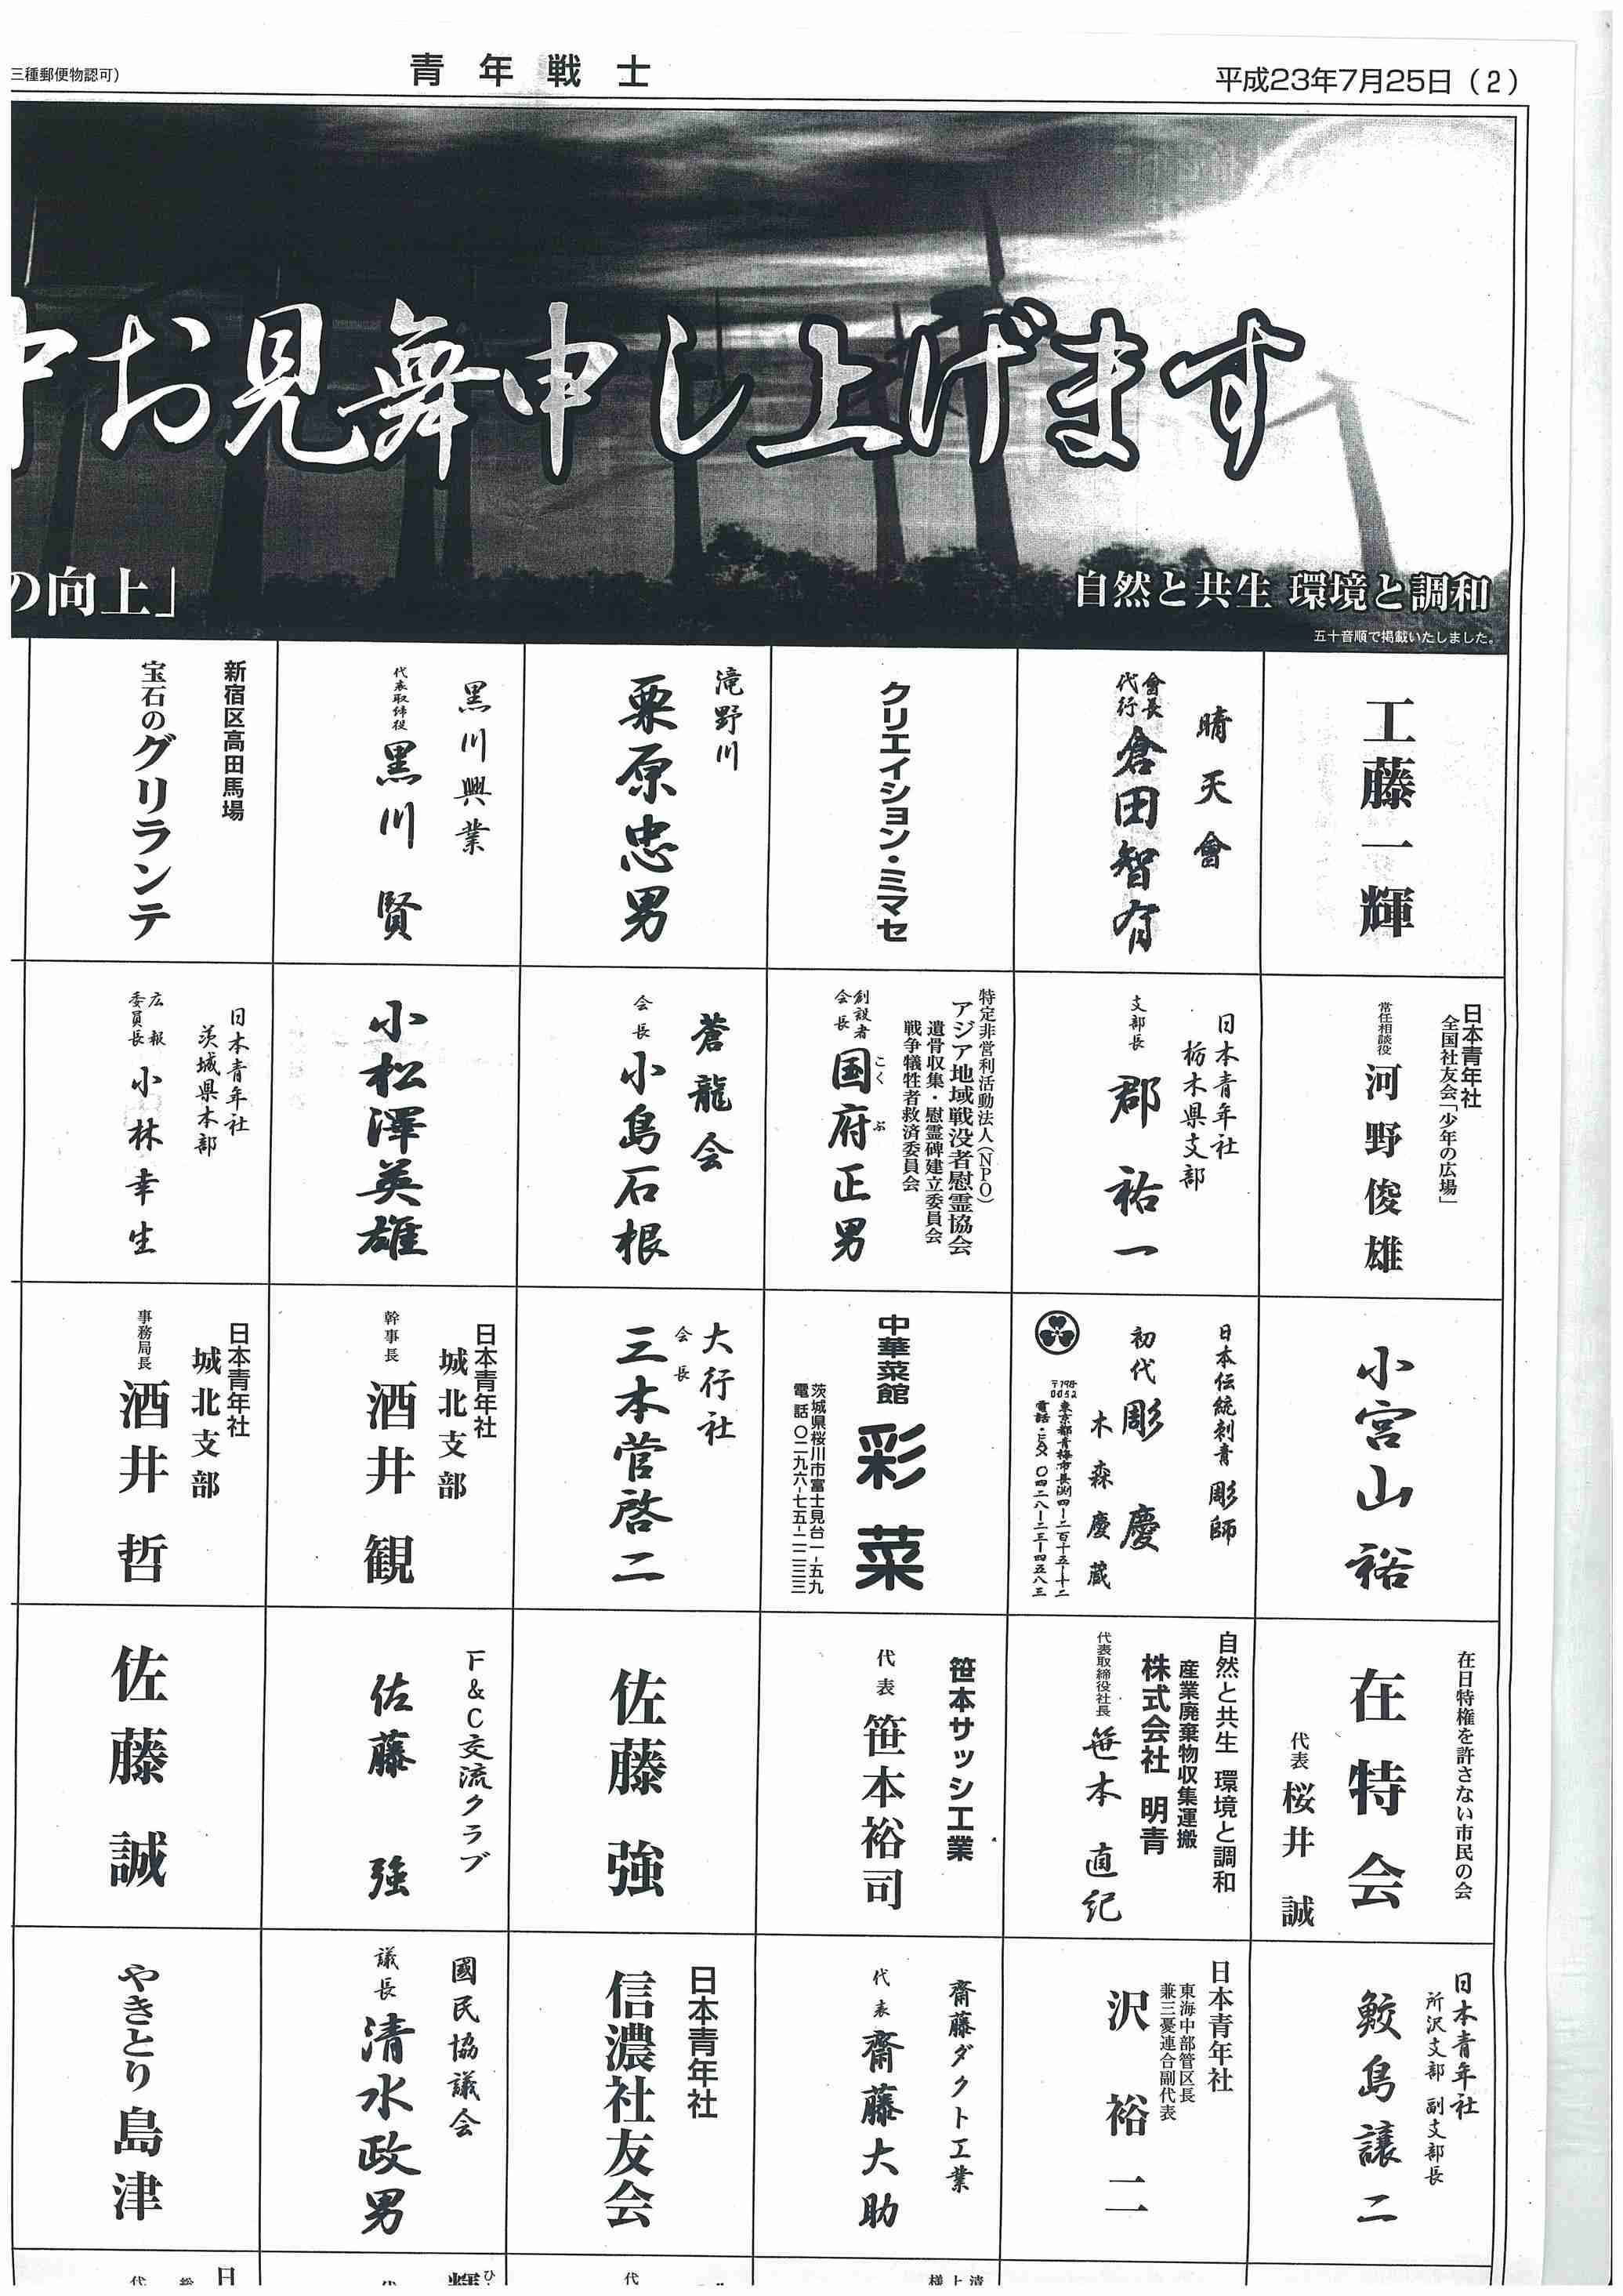 三種郵便物認可）
青年戦士
平成23年7月25日（2）
中お見舞申し上げます
の向上」
自然と共生 環境と調和
五十音順で掲載いたしました。
工藤一輝
晴天會
會長代行
倉田智有
クリエイション・ミマセ
滝野川
栗原忠男
黒川興業
代表取締役
黒川賢
新宿区高田馬場
宝石のグリランテ
日本青年社
全国社友会「少年の広場」
常任相談役
河野俊雄
日本青年社
栃木県支部
支部長
郡祐一
特定非営利活動法人（NPO）
アジア地域戦没者慰霊協会
遺骨収集・慰霊碑建立委員会
戦争犠牲者救済委員会
創設者
会長
国府正男
こくぶ
蒼龍会
会長
小島石根
小松澤英雄
日本青年社
茨城県本部
広報
委員長
小林幸生
小宮山裕
日本伝統刺青 彫師
初代 彫慶
木森慶蔵
〒198-0052
東京都青梅市長渕四ー二百十五ー十二
電話・FAX 〇四二八ー二三ー四五八三
中華菜館
彩菜
茨城県桜川市富士見台一-五九
電話 〇二九六-七五-一二三三
大行社
会長
三本菅啓二
日本青年社
城北支部
幹事長
酒井観
日本青年社
城北支部
事務局長
酒井哲
在日特権を許さない市民の会
在特会
代表 桜井誠
自然と共生 環境と調和
産業廃棄物収集運搬
株式会社 明青
代表取締役社長
笹本直紀
笹本サッシ工業
代表
笹本裕司
佐藤強
F&C交流クラブ
佐藤強
佐藤誠
日本青年社
所沢支部 副支部長
鮫島譲二
日本青年社
東海中部管区長
兼三憂連合副代表
沢裕二
齋藤ダクト工業
代表
齋藤大助
日本青年社
信濃社友会
國民協議会
議長
清水政男
やきとり島津